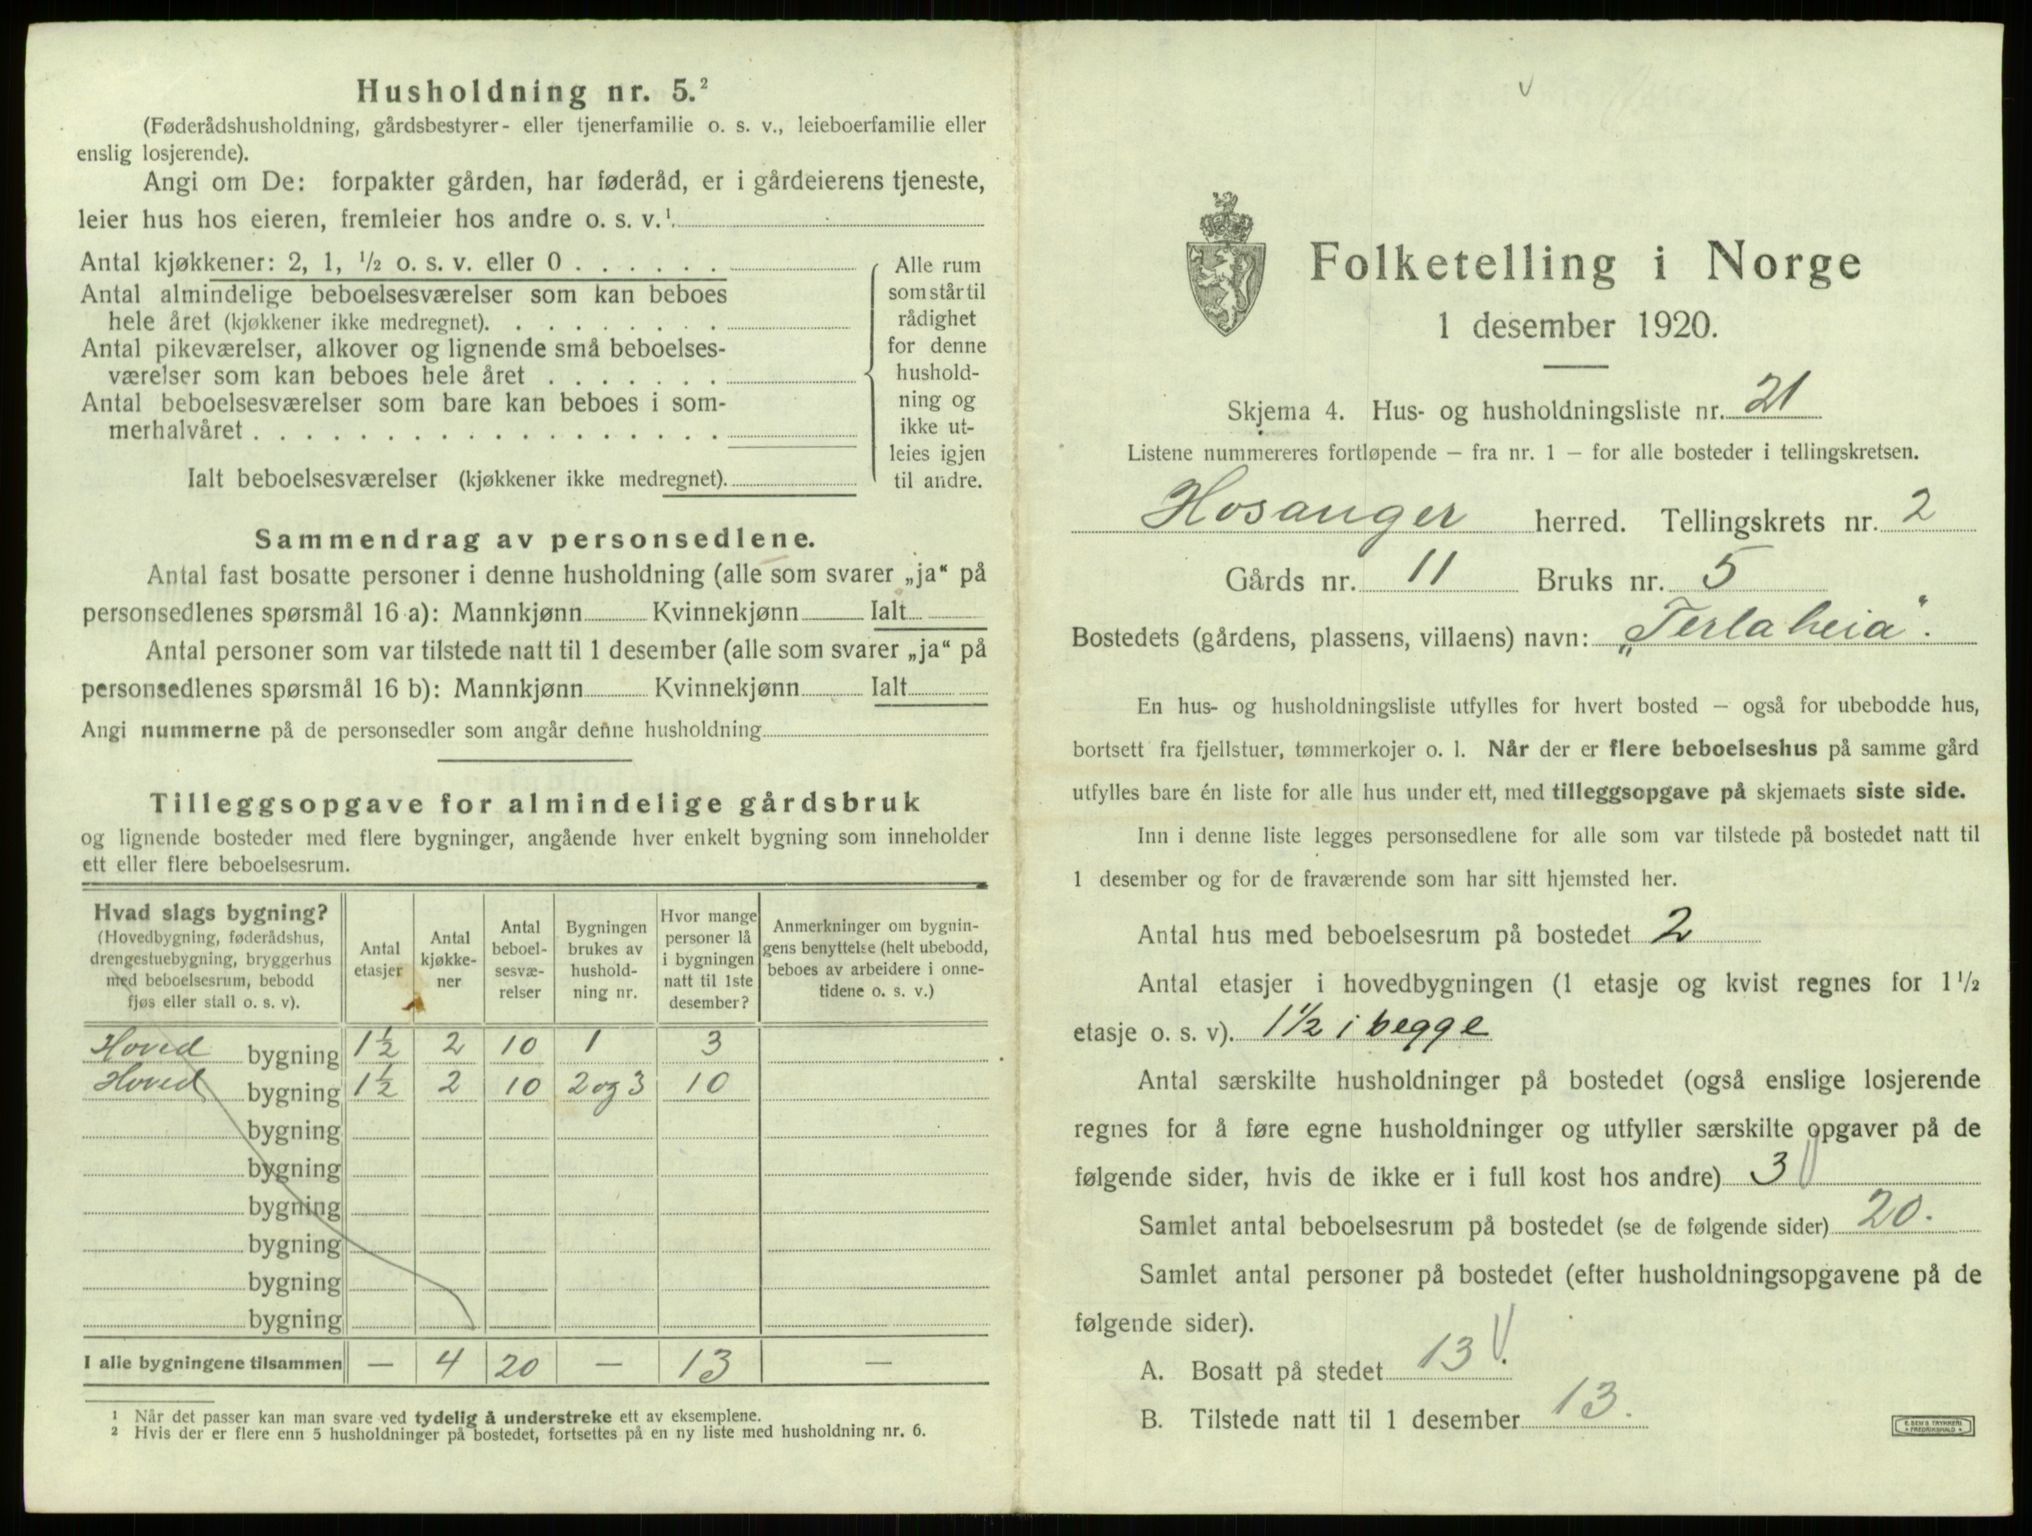 Husholdning nr. 5.²
(Føderådshusholdning, gårdsbestyrer- eller tjenerfamilie o. s. v., leieboerfamilie eller
enslig losjerende).
Angi om De: forpakter gården, har føderåd, er i gårdeierens tjeneste,
leier hus hos eieren, fremleier hos andre o. s. v.¹
Antal kjøkkener: 2, 1, ½ o. s. v. eller 0 . . . . . .
Antal almindelige beboelsesværelser som kan beboes
hele året (kjøkkener ikke medregnet). . . . . . . . .
Antal pikeværelser, alkover og lignende små beboelses-
værelser som kan beboes hele året . . . . . . .
Antal beboelsesværelser som bare kan beboes i som-
merhalvåret . . . . . . . . . . . . . . . .
Ialt beboelsesværelser (kjøkkener ikke medregnet).
Alle rum
som står til
rådighet
for denne
hushold-
ning og
ikke ut-
leies igjen
til andre.
Sammendrag av personsedlene.
Antal fast bosatte personer i denne husholdning (alle som svarer „ja“ på
personsedlenes spørsmål 16 a): Mannkjønn Kvinnekjønn Ialt
Antal personer som var tilstede natt til 1 desember (alle som svarer „ja“ på
personsedlenes spørsmål 16 b): Mannkjønn Kvinnekjønn Ialt
Angi nummerne på de personsedler som angår denne husholdning
Tilleggsopgave for almindelige gårdsbruk
og lignende bosteder med flere bygninger, angående hver enkelt bygning som inneholder
ett eller flere beboelsesrum.
Hvad slags bygning?
(Hovedbygning, føderådshus,
drengestuebygning, bryggerhus
med beboelsesrum, bebodd
fjøs eller stall o. s. v).
Antal
etasjer
Antal
kjøkke-
ner
Antal
beboel-
sesvæ-
relser
Bygningen
brukes av
hushold-
ning nr.
Hvor mange
personer lå
i bygningen
natt til 1ste
desember?
Anmerkninger om bygnin-
gens benyttelse (helt ubebodd,
beboes av arbeidere i onne-
tidene o. s. v.)
Hoved bygning 1½ 2 10 1 3
Hoved bygning 1½ 2 10 2 og 3 10
bygning
bygning
bygning
bygning
bygning
bygning
I alle bygningene tilsammen — 4 20 — 13 —
¹ Når det passer kan man svare ved tydelig å understreke ett av eksemplene.
² Hvis der er flere enn 5 husholdninger på bostedet, fortsettes på en ny liste med husholdning nr. 6.
Folketelling i Norge
1 desember 1920.
Skjema 4. Hus- og husholdningsliste nr. 21
Listene nummereres fortløpende – fra nr. 1 – for alle bosteder i tellingskretsen.
Hosanger herred. Tellingskrets nr. 2
Gårds nr. 11 Bruks nr. 5
Bostedets (gårdens, plassens, villaens) navn: „Terlaheia“.
En hus- og husholdningsliste utfylles for hvert bosted – også for ubebodde hus,
bortsett fra fjellstuer, tømmerkojer o. l. Når der er flere beboelseshus på samme gård
utfylles bare én liste for alle hus under ett, med tilleggsopgave på skjemaets siste side.
Inn i denne liste legges personsedlene for alle som var tilstede på bostedet natt til
1 desember og for de fraværende som har sitt hjemsted her.
Antal hus med beboelsesrum på bostedet 2
Antal etasjer i hovedbygningen (1 etasje og kvist regnes for 1½
etasje o. s. v). 1½ i begge
Antal særskilte husholdninger på bostedet (også enslige losjerende
regnes for å føre egne husholdninger og utfyller særskilte opgaver på de
følgende sider, hvis de ikke er i full kost hos andre) 3
Samlet antal beboelsesrum på bostedet (se de følgende sider) 20.
Samlet antal personer på bostedet (efter husholdningsopgavene på de
følgende sider).
A. Bosatt på stedet 13.
B. Tilstede natt til 1 desember 13.
E. SEM'S TRYKKERI
FREDRIKSHALD